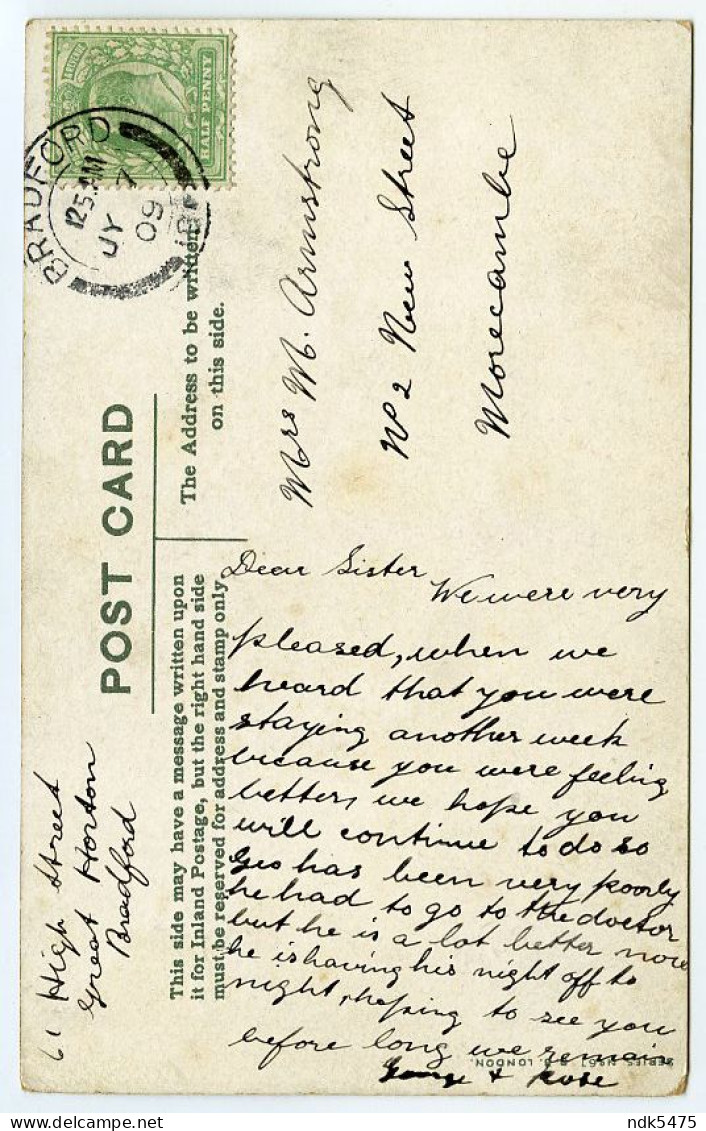 HALF PENNY
BRADFORD
12 5.AM
JY 7
09
POST CARD
The Address to be written
on this side.
This side may have a message written upon
it for Inland Postage, but the right hand side
must be reserved for address and stamp only
Mrs M. Armstrong
No 2 New Street
Morecambe
61 High Street
Great Horton
Bradford
Dear Sister
We were very
pleased, when we
heard that you were
staying another week
because you were feeling
better, we hope you
will continue to do so
Geo has been very poorly
he had to go to the doctor
but he is a lot better now
he is having his night off to
night, hoping to see you
before long we remain
George + Rose
LONDON.
delcampe.net
ndk5475